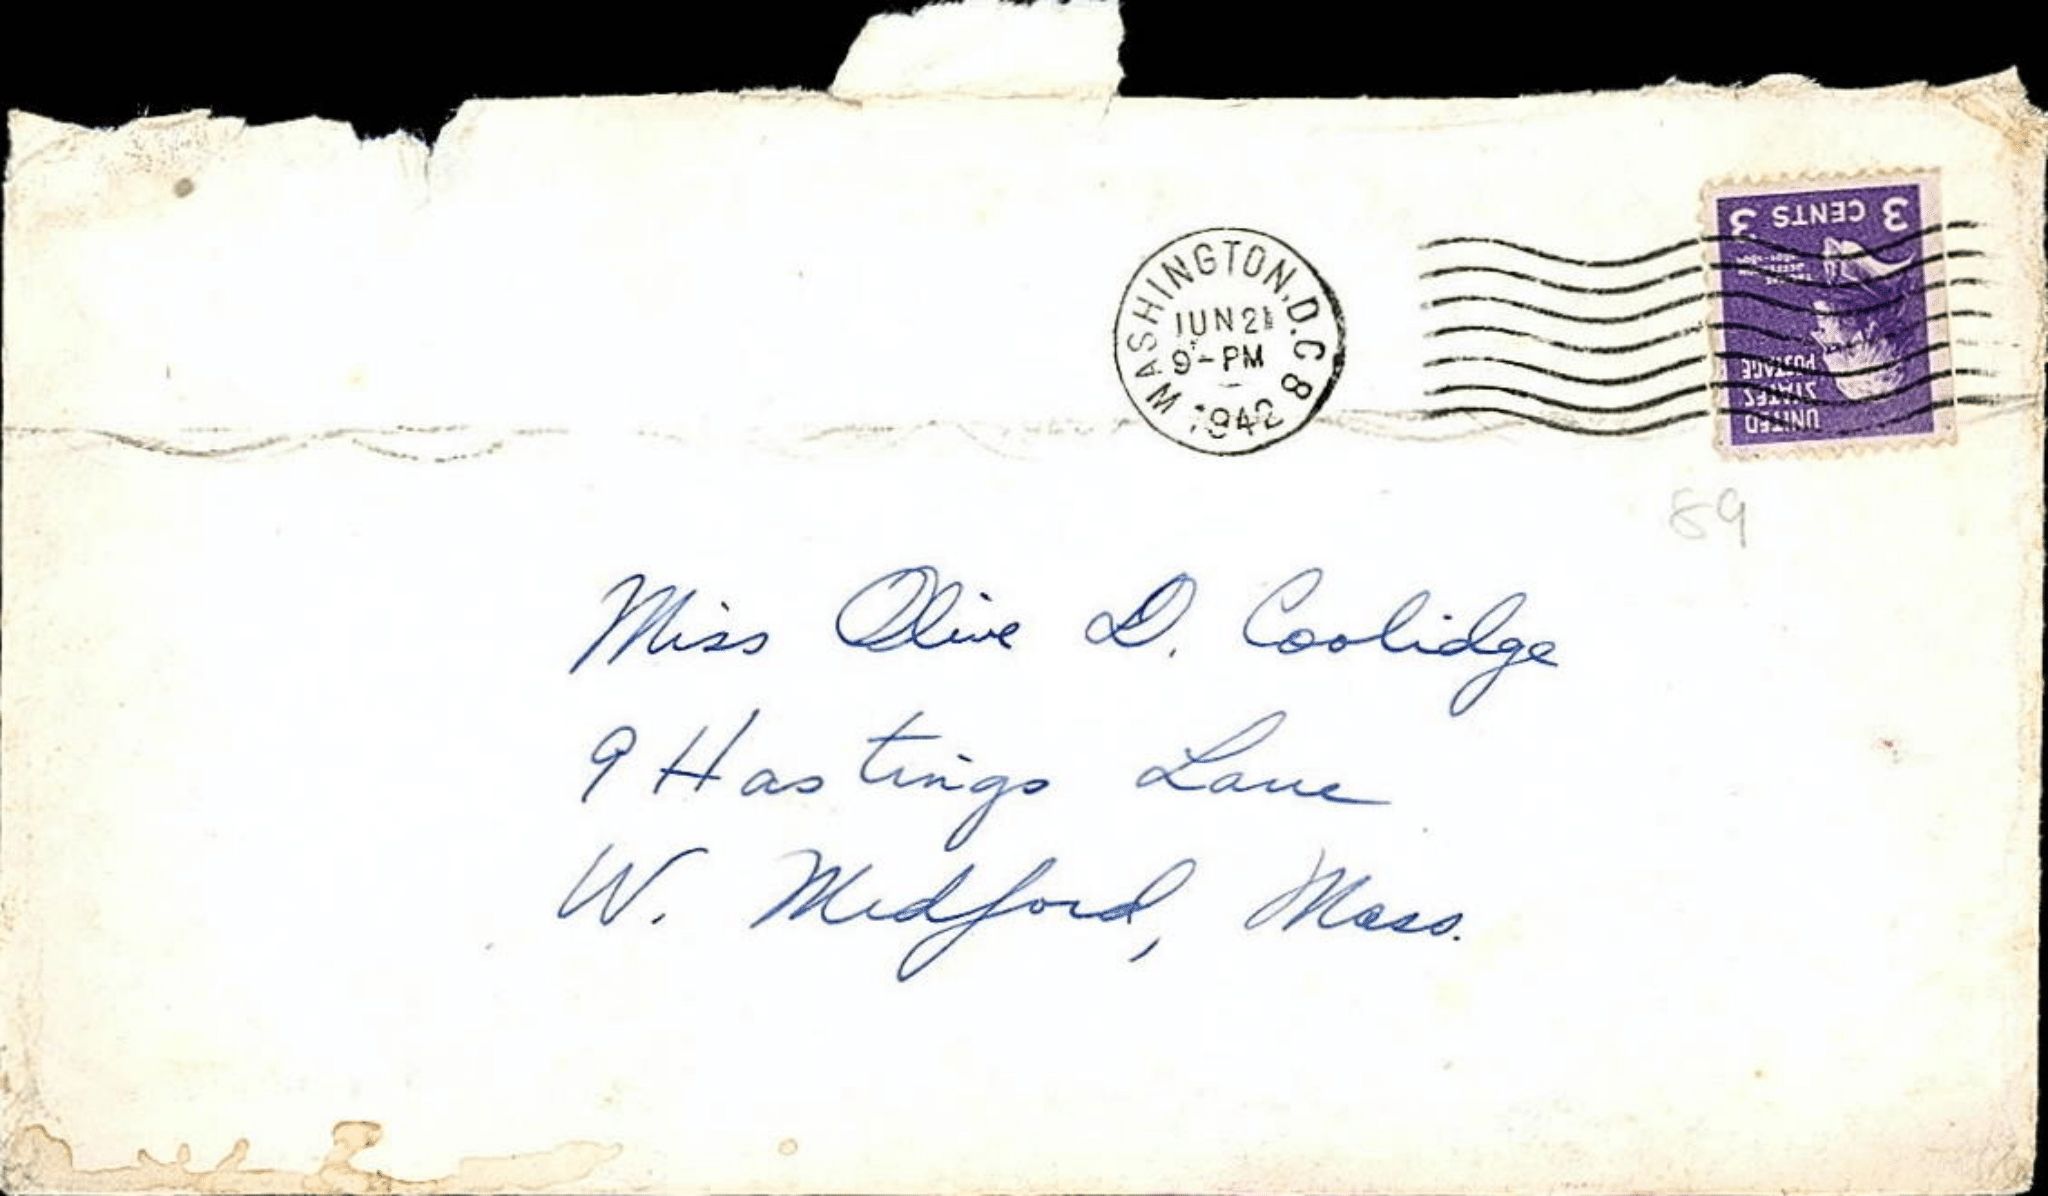 WASHINGTON, D.C. 8
JUN 21
9 - PM
1942
3 CENTS 3
THOMAS
JEFFERSON
1801-1809
UNITED
STATES
POSTAGE
89
Miss Olive D. Coolidge
9 Hastings Lane
W. Medford, Mass.